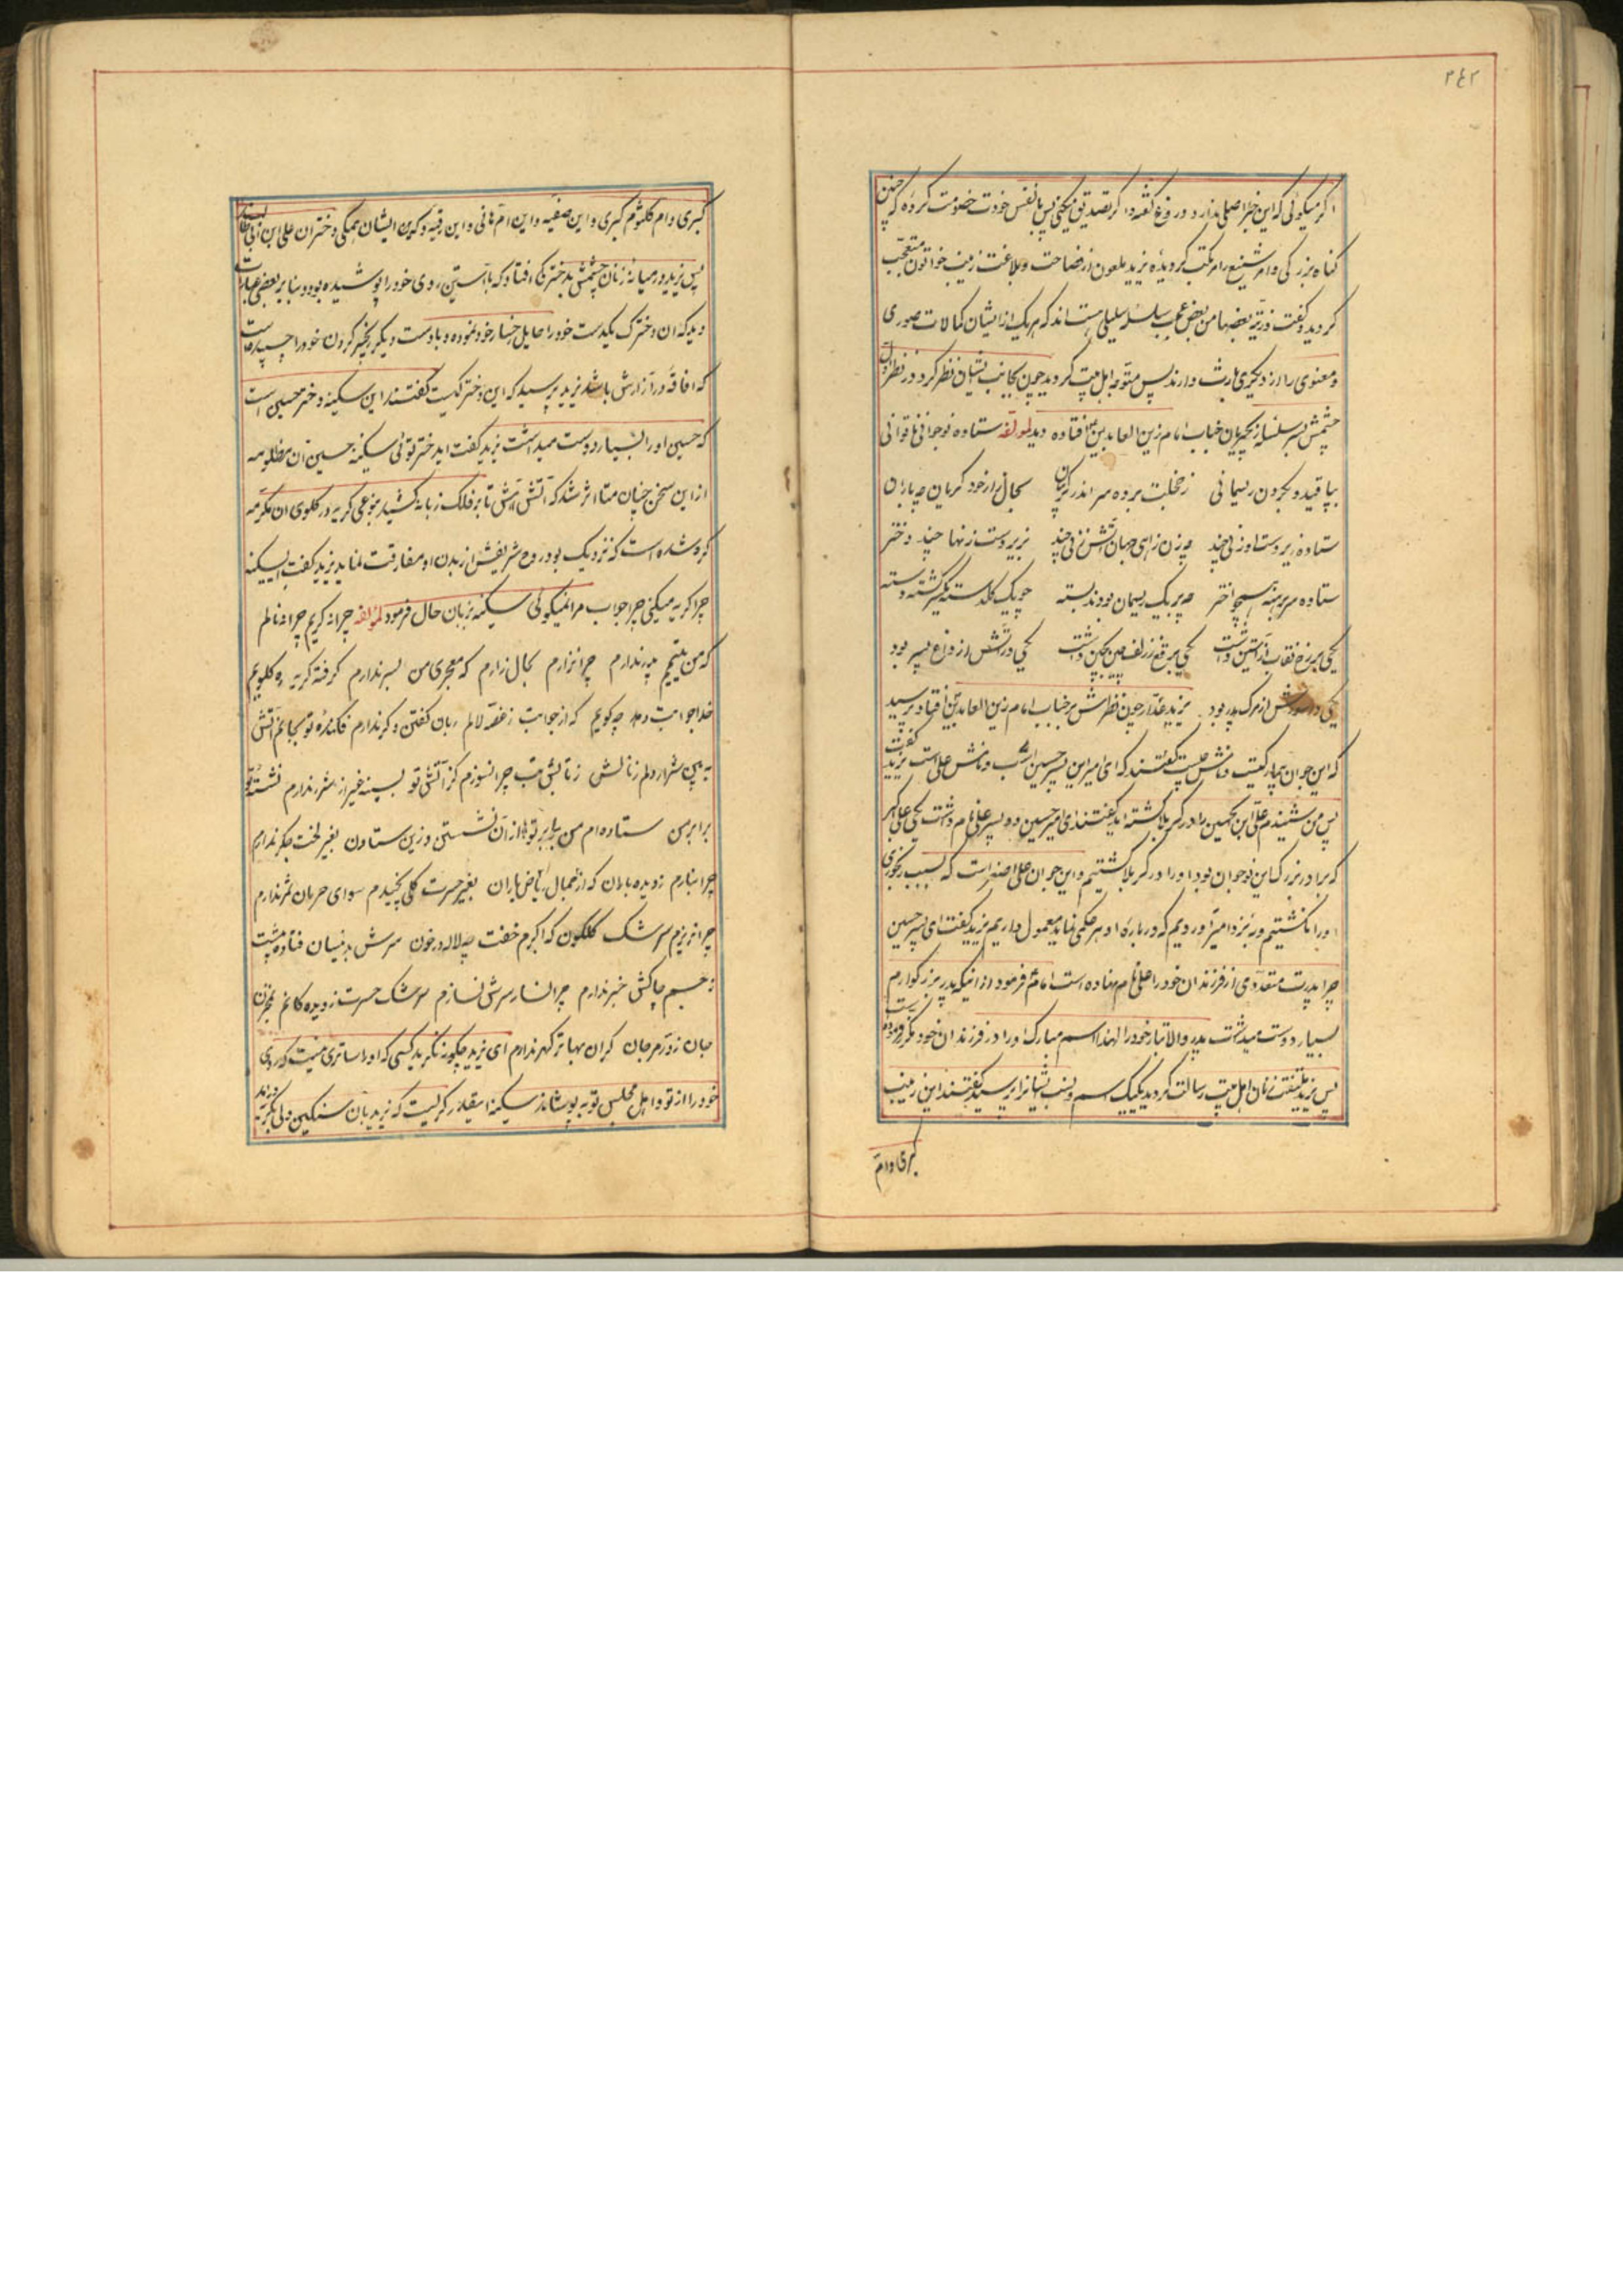 ۲۴۲
اگر میگوئی که این خبر اصلی ندارد و دروغ گفته و اگر تصدیق میکنی پس با نفس خودت خصومت کرده که چنین
گناه بزرگی و امر شنیع را مرتکب گردیده یزید ملعون از فصاحت و بلاغت زینب خواتون متعجب
گردید و گفت ذریة بعضها من بعض سلسله هستند که هریک از ایشان کمالات صوری
و معنوی را از دیگری وارث دارند پس متوجه اهل بیت گردید چون بجانب ایشان نظر کرد در نظر اول
چشمش بر سلسله زنجیر جناب امام زین العابدین افتاده دید لمولفه ستاده نوجوانی ناتوانی
بپا قید و بگردن ریسمانی ز خجلت برده سر اندر گریبان بحال زار خود گریان چه باران
ستاده زیر دست او زنی چند چه زن ز آهی جهان آتش زنی چند بزیر دست زنها چند دختر
ستاده سر برهنه همچو اختر چه بر یک ریسمان بودند بسته چو یک گلدسته
یکی بر رخ نقاب از آستین داشت یکی برقع ز زلف چین بچین داشت یکی در آتش از داغ پسر بود
یکی در سوزش از مرگ پدر بود یزید غدار چون نظرش بر جناب امام زین العابدین افتاد پرسید
که این جوان بیمار کیست و نامش چیست گفتند که ای امیر این پسر حسین است و نامش علی است یزید گفت
پس من شنیدم علی ابن الحسین را در کربلا کشته اند گفتند ای امیر حسین دو پسر علی نام داشت یکی علی اکبر
که برادر بزرگ این نوجوان بود او را در کربلا کشتیم و این جوان علی اصغر است که بسبب رنجوری
او را نکشتیم و به نزد امیر آوردیم که درباره او هر حکمی نماید معمول داریم یزید گفت ای پسر حسین
چرا پدرت متعددی از فرزندان خود را علی نام نهاده است امام فرمود از اینکه پدر بزرگوارم
بسیار دوست میداشت پدر والاتبار خود را لهذا اسم مبارک او را در فرزندان خود مکرر فرموده است
پس یزید ملتفت زنان اهل بیت رسالت گردید یکیک اسم و نسب ایشانرا پرسید گفتند این زینب
کبری و ام
کبری و ام کلثوم کبری و این صفیه و این ام هانی و این رقیه و که این ایشان همگی دختران علی ابن ابی طالب
پس یزید در میانه زنان چشمش بدخترکی افتاد که با آستین روی خود را پوشیده بود و بنا بر بعضی عبارات
دید که آن دخترک یکدست خود را حایل رخسار خود نموده و با دست دیگر زنجیر گردن خود را چسبیده است
که افاقه در آزارش باشد یزید پرسید که این دختر کیست گفتند این سکینه دختر حسین است
که حسین او را بسیار دوست میداشت یزید گفت ایدختر توئی سکینه حسین آن مظلومه
از این سخن چنان متاثر شد که آتش آهش تا بر فلک زبانه کشید بنوعی گریه در گلوی آن مکرمه
گره شده است که نزدیک بود روح شریفش از بدن او مفارقت نماید یزید گفت ای سکینه
چرا گریه میکنی چرا جواب مرا نمیگوئی سکینه بزبان حال فرمود لمؤلفه چرا نه گریم چرا نه نالم
که من یتیمم پدر ندارم چرا نزارم بحال زارم که معجری من بسر ندارم گرفته گریه ره گلویم
خدا جوابت دهد چه گویم که از جوابت ز غصه لالم زبان گفتن دگر ندارم فکنده تو بجانم آتش
به بین شرار دلم ز نالش ز تابش تب چرا نسوزم کز آتش تو بسینه غیر از شرر ندارم نشسته تو
برابر من ستاده ام من برابر تو از آن نشستن و زین ستادن بغیر لخت جگر ندارم
چرا نبارم ز دیده باران که از جمال ریاض یاران بغیر حسرت گلی نچیدم سوای حرمان ثمر ندارم
چرا نریزم سرشک گلگون که اکبرم خفت چه لاله در خون سرش بدینسان فتاده پیشت
ز جسم چاکش خبر ندارم چرا نثار سرش نسازم سرشک حسرت ز دیده کانم بجز
جان ز در مرجان گران بهاتر گهر ندارم ای یزید چگونه نگرید کسی که او را ساتری نیست که روی
خود را از تو و اهل مجلس تو بپوشاند سکینه اینقدر گریست که یزید بآن سنگین دلی بگریه درآمد